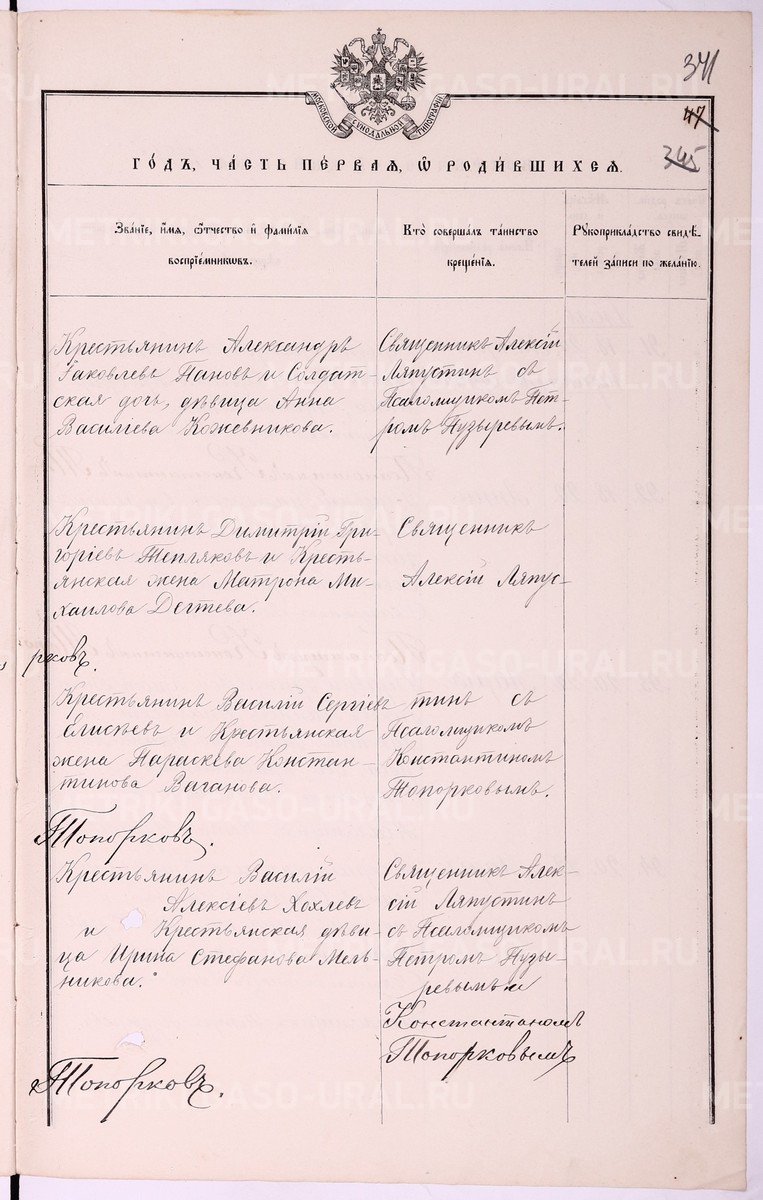 341
47
345
МОСКОВСКОЙ СѴНОДАЛЬНОЙ ТИПОГРАФІИ
ГО́ДЪ, ЧА́СТЬ ПЕ́РВАЯ, Ѽ РОДИ́ВШИХСЯ.
Зва́нїе, и҆́мя, ѻ҆́тчество и҆ фами́лїя
воспрїе́мникѡвъ.
Кто̀ соверша́лъ та́инство
креще́нїя.
Рꙋкоприкла́дство свидѣ́-
телей за́писи по жела́нїю.
Крестьянинъ Александръ
Яковлевъ Пановъ и Солдат-
ская дочь, дѣвица Анна
Василіева Кожевникова.
Священникъ Алексій
Ляпустинъ съ
Псаломщикомъ Пет-
ромъ Пузыревымъ.
Крестьянинъ Димитрій Гри-
горіевъ Тепляковъ и Кресть-
янская жена Матрона Ми-
хаилова Дегтева.
Священникъ
Алексій Ляпус-
рковъ.
Крестьянинъ Василій Сергіев
Елисѣевъ и Крестьянская
жена Параскева Констан-
тинова Ваганова.
тинъ съ
Псаломщикомъ
Константиномъ
Топорковымъ.
Топорковъ.
Крестьянинъ Василій
Алексіевъ Хохлевъ
и Крестьянская дѣви-
ца Ирина Стефанова Мель-
никова.
Священникъ Алек-
сій Ляпустинъ
съ Псаломщикомъ
Петромъ Пузы-
ревымъ и
Константиномъ
Топорковымъ
Топорковъ.
METRIKI.GASO-URAL.RU